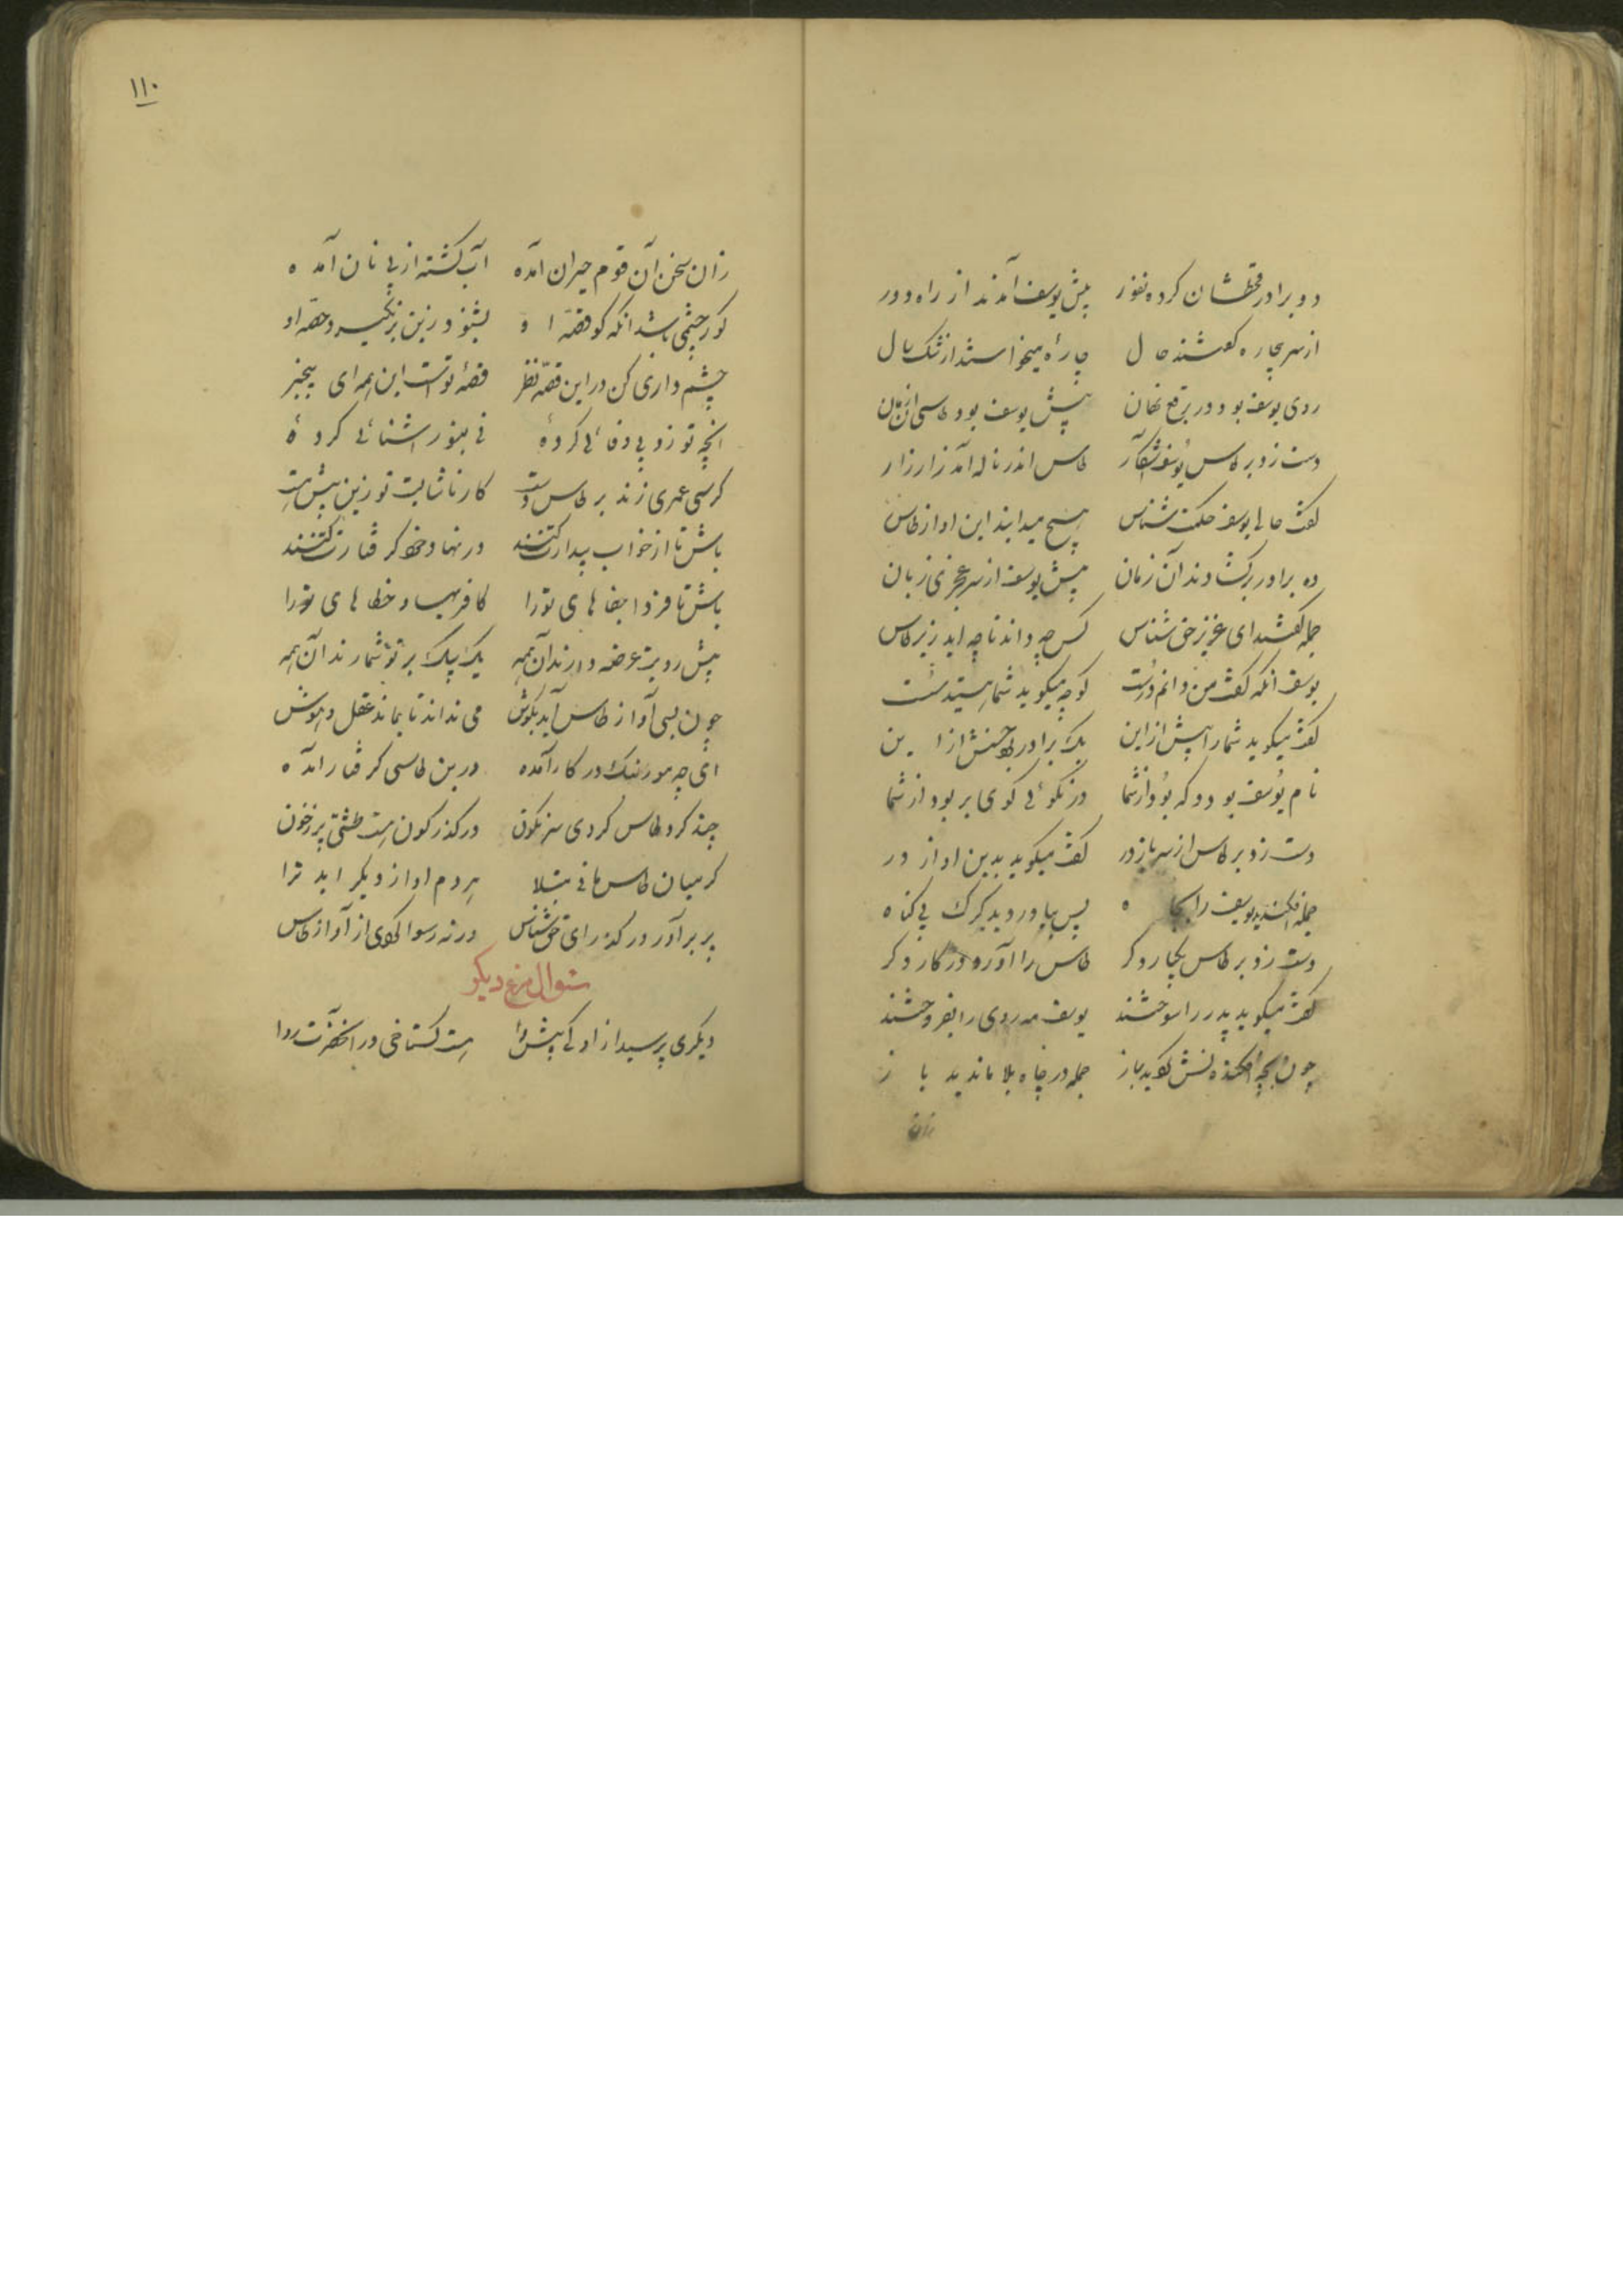 دو برادر قحطشان کرده نفور پیش یوسف آمدند از راه دور
از سر بیچاره گفتند حال چارهٔ میخواستند از تنگ سال
روی یوسف بود در برقع نهان پیش یوسف بود طاسی آن زمان
دست زد بر طاس یوسف آشکار طاس اندر ناله آمد زار زار
گفت حالی یوسف حکمت شناس هیچ میدانید این اواز طاس
ده برادر برکشادند آن زمان پیش یوسف از سر عجزی زبان
جمله گفتند ای عزیز حق شناس کس چه داند تا چه اید زیر طاس
یوسف انکه گفت من دانم درست کو چه میگوید شما هستید سست
گفت میگوید شما را پیش از این یک برادر بود حسنش از این
نام یوسف بود و که بود از شما در نکوئی کوی بر بود از شما
دست زد بر طاس از سر باز در گفت میگوید بدین اواز در
جمله افکندید یوسف را بچاه پس بیاوردید کرک بی کناه
دست زد بر طاس یکبار دکر طاس را آورد در کار دکر
گفت میگوید پدر را سوختند یوسف مه روی را بفروختند
چون بچه افکندنش کوید باز جمله در چاه بلا ماندید باز
۱۱۰
زان سخن آن قوم حیران آمده آب کشته از پی نان آمده
کور چشمی باشد انکه کو قصهٔ او بشنود زین بر نکیرد حصهٔ او
چشم داری کن در این قصه نظر قصهٔ توست این همه ای بیخبر
انچه تو زد بی وفائی کردهٔ نی بنور اشنائی کردهٔ
کر کسی عمری زند بر طاس دست کار ناشایست تو زین بیش هست
باش تا از خواب بیدارت کنند در نهاد خود کرفتارت کنند
باش تا فردا جفاهای تو را کافریها و خطاهای تو را
پیش رویت عرضه دارند آن همه یک بیک بر تو شمارند آن همه
چون بسی آواز طاس آید بکوش می نداند تا بماند عقل و هوش
ای چه مور لنک در کار آمده در بن طاسی کرفتار آمده
چند کرد طاس کردی سرنکون در کذر کون هست طشتی پر ز خون
کر میان طاس مانی مبتلا هر دم اواز دیکر اید ترا
پر بر آور در کذر ای حق شناس ورنه رسوا کردی از آواز طاس
سئوال مرغ دیکر
دیکری پرسید از او کای پیشوا هست کستاخی در انحضرت روا